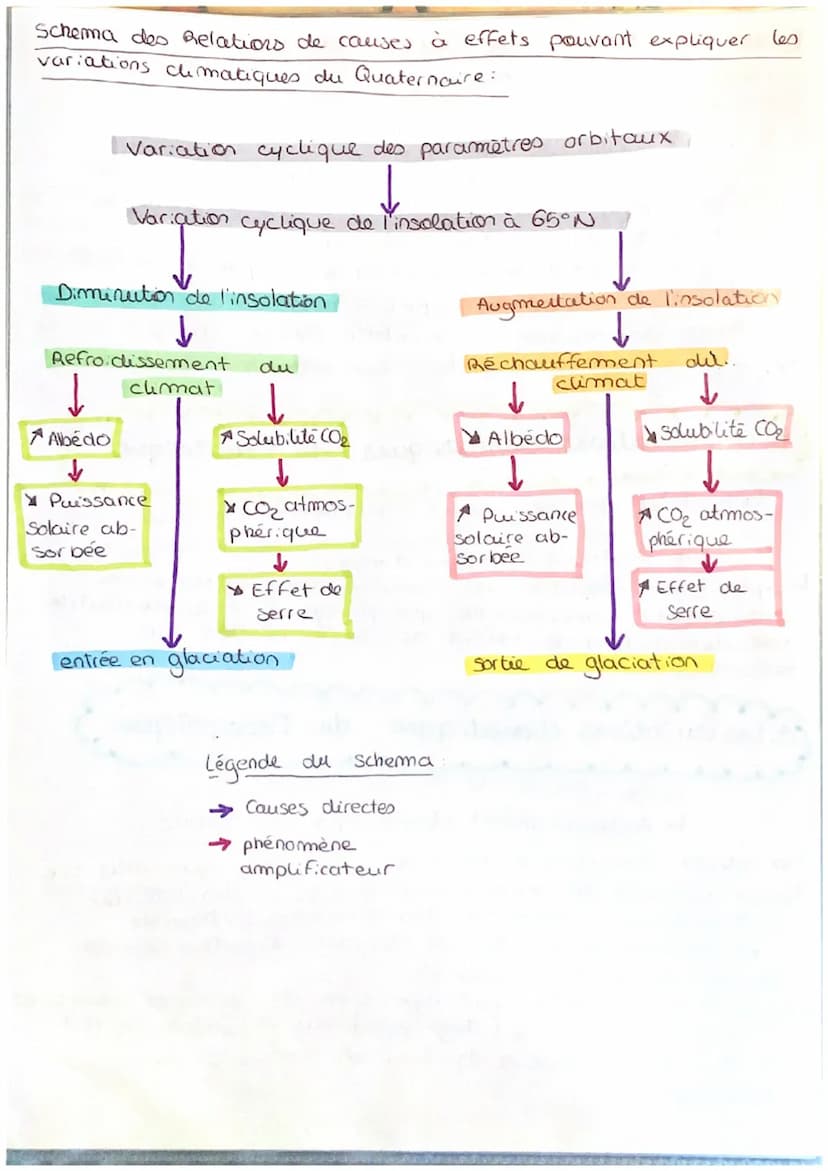 Schema des Relations de causes à effets pouvant expliquer les
variations climatiques du Quaternaire :
Variation cyclique des paramètres orbitaux
Variation cyclique de l'insolation à 65°N
Diminution de l'insolation
Augmentation de l'insolation
Refroidissement du
climat
Réchauffement du
climat
↗ Albédo
↗ Solubilité CO₂
↘ Albédo
↘ Solubilité CO₂
↘ Puissance
Solaire ab-
sorbée
↘ CO₂ atmos-
phérique
↗ Puissance
solaire ab-
sorbée
↗ CO₂ atmos-
phérique
↘ Effet de
serre
↗ Effet de
serre
entrée en glaciation
sortie de glaciation
Légende du schema :
→ Causes directes
→ phénomène
amplificateur